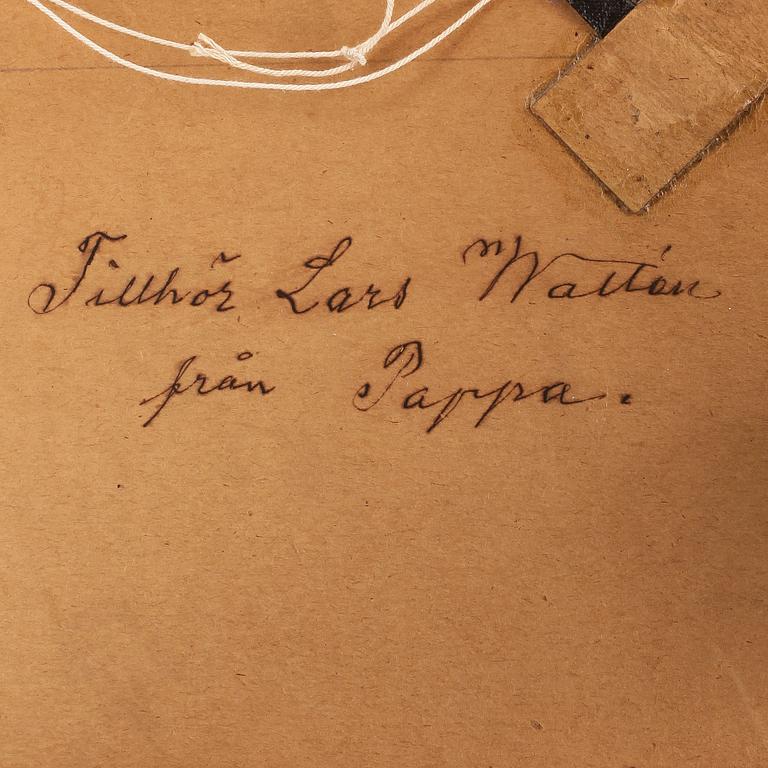 Tillhör Lars Wallén
från Pappa.